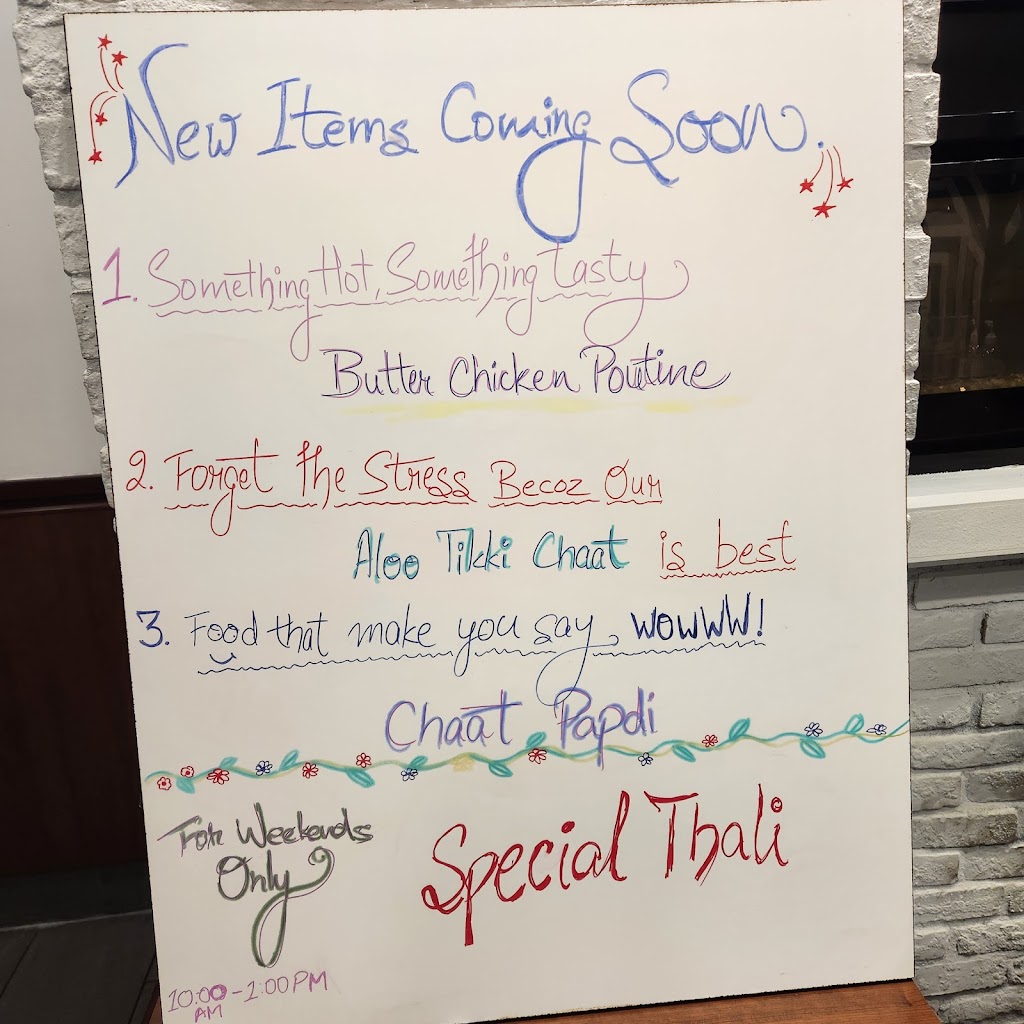 New Items Coming Soon.
1. Something Hot, Something tasty
Butter Chicken Poutine
2. Forget the Stress Becoz Our
Aloo Tikki Chaat is best
3. Food that make you say, WOWWW!
Chaat Papdi
For Weekends
Only
Special Thali
10:00 - 1:00 PM
AM